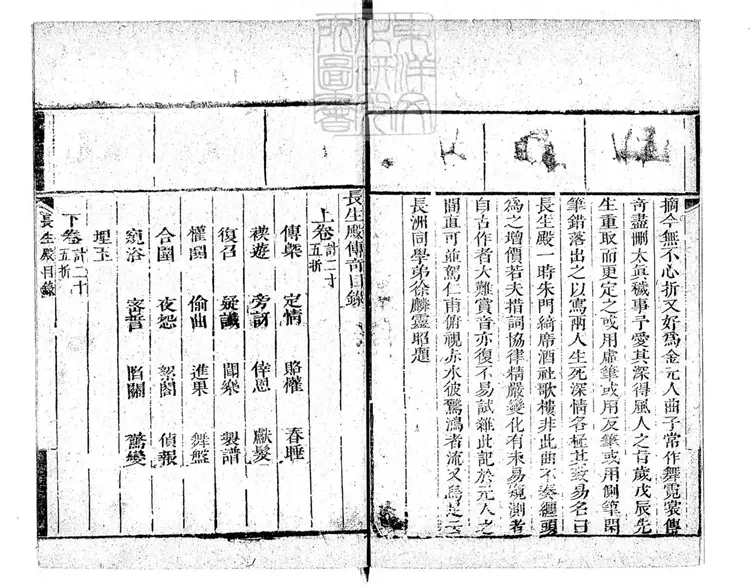 摘今無不心折又好爲金元人曲子常作舞霓裳傳
奇盡刪太眞穢事予愛其深得風人之旨歲戊辰先
生重取而更定之或用虛筆或用反筆或用側筆閒
筆錯落出之以寫兩人生死深情各極其致易名曰
長生殿一時朱門綺席酒社歌樓非此曲不奏纏頭
為之增價若夫措詞協律精嚴變化有未易窺測者
自古作者大難賞音亦復不易試雜此記於元人之
間直可並駕仁甫俯視赤水彼驚鴻者流又烏足云
長洲同學弟徐麟靈昭題
長生殿傳奇目錄
上卷計二十五折
傳槩 定情 賂權 春睡
禊遊 旁訝 倖恩 獻髮
復召 疑讖 聞樂 製譜
權鬨 偷曲 進果 舞盤
合圍 夜怨 絮閣 偵報
窺浴 密誓 陷關 驚變
埋玉
下卷計二十五折
長生殿目錄